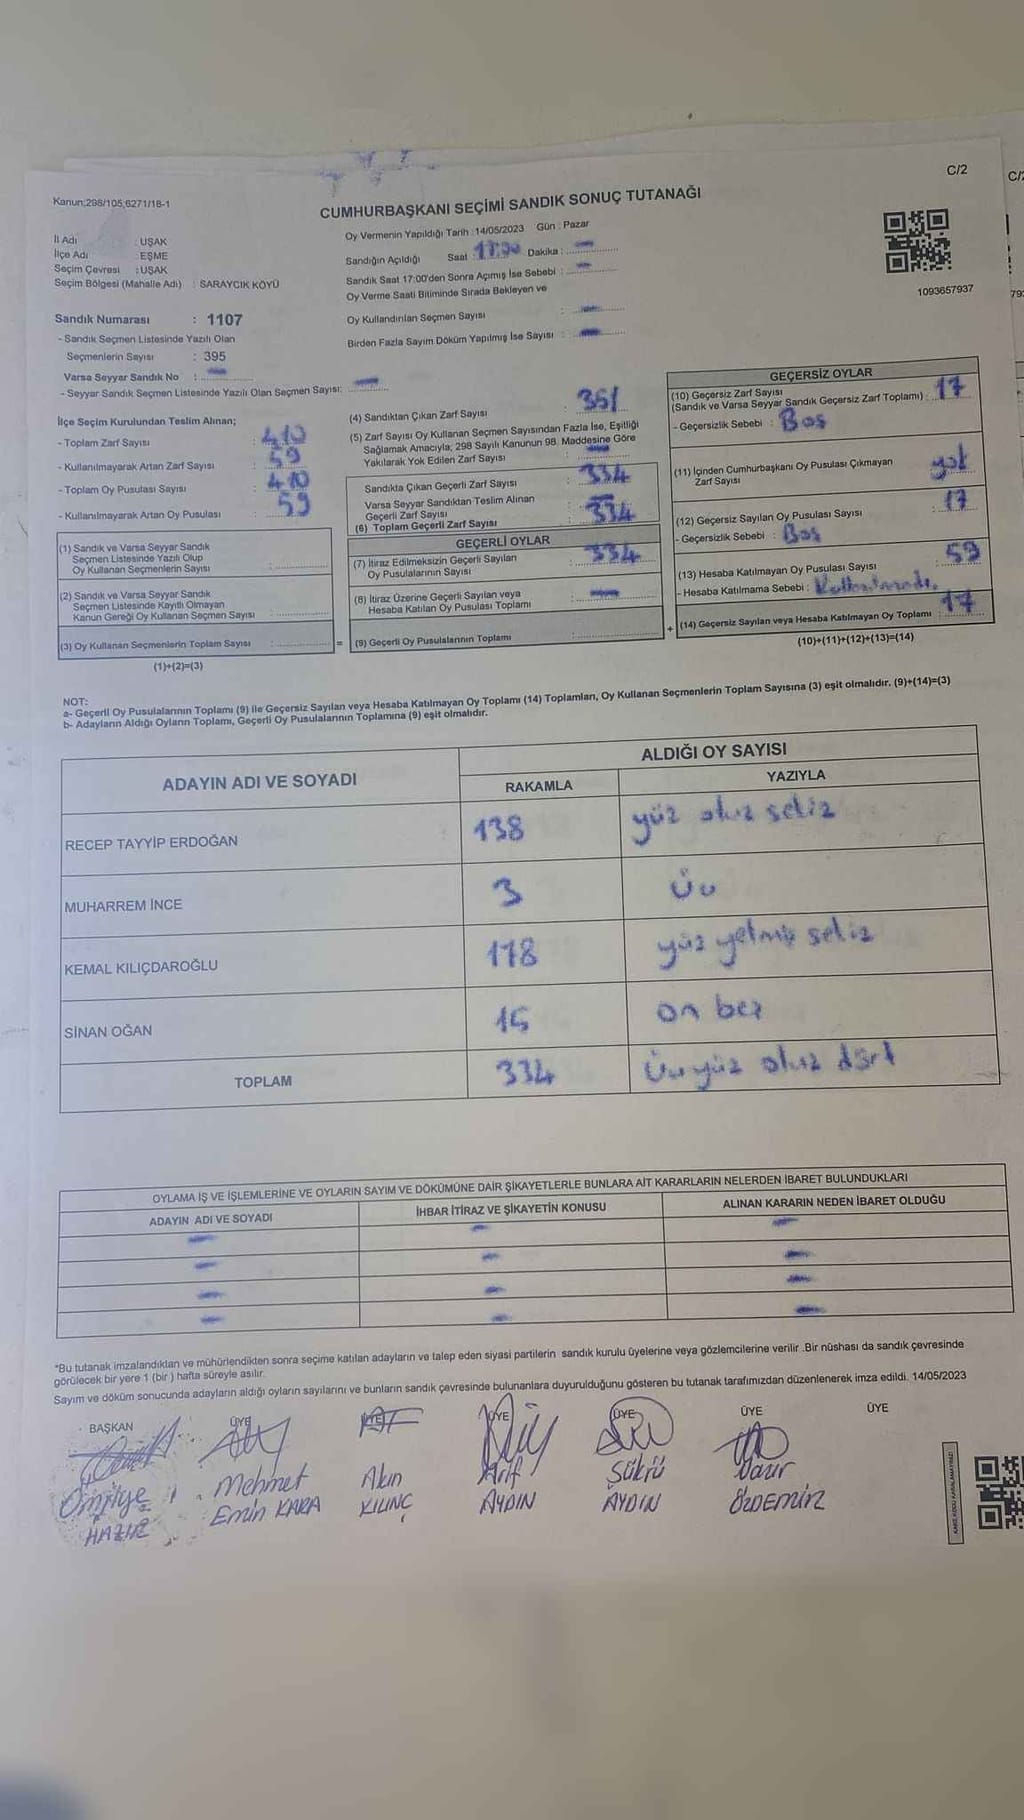 C/2
Kanun:298/105,6271/18-1
CUMHURBAŞKANI SEÇİMİ SANDIK SONUÇ TUTANAĞI
İl Adı : UŞAK
İlçe Adı EŞME
Seçim Çevresi : UŞAK
Seçim Bölgesi (Mahalle Adı) : SARAYCIK KÖYÜ
Oy Vermenin Yapıldığı Tarih : 14/05/2023 Gün : Pazar
Sandığın Açıldığı Saat : 17:00 Dakika :
Sandık Saat 17:00'den Sonra Açımış İse Sebebi :
Oy Verme Saati Bitiminde Sırada Bekleyen ve
Oy Kullandırılan Seçmen Sayısı :
Birden Fazla Sayım Döküm Yapılmış İse Sayısı :
1093657937
Sandık Numarası : 1107
- Sandık Seçmen Listesinde Yazılı Olan
Seçmenlerin Sayısı : 395
Varsa Seyyar Sandık No :
- Seyyar Sandık Seçmen Listesinde Yazılı Olan Seçmen Sayısı:
İlçe Seçim Kurulundan Teslim Alınan;
- Toplam Zarf Sayısı : 410
- Kullanılmayarak Artan Zarf Sayısı : 59
- Toplam Oy Pusulası Sayısı : 410
- Kullanılmayarak Artan Oy Pusulası : 59
(1) Sandık ve Varsa Seyyar Sandık
Seçmen Listesinde Yazılı Olup
Oy Kullanan Seçmenlerin Sayısı :
(2) Sandık ve Varsa Seyyar Sandık
Seçmen Listesinde Kayıtlı Olmayan
Kanun Gereği Oy Kullanan Seçmen Sayısı :
(3) Oy Kullanan Seçmenlerin Toplam Sayısı :
(1)+(2)=(3)
(4) Sandıktan Çıkan Zarf Sayısı : 351
(5) Zarf Sayısı Oy Kullanan Seçmen Sayısından Fazla İse, Eşitliği
Sağlamak Amacıyla; 298 Sayılı Kanunun 98. Maddesine Göre
Yakılarak Yok Edilen Zarf Sayısı :
Sandıkta Çıkan Geçerli Zarf Sayısı : 334
Varsa Seyyar Sandıktan Teslim Alınan
Geçerli Zarf Sayısı :
(6) Toplam Geçerli Zarf Sayısı : 334
GEÇERLİ OYLAR
(7) İtiraz Edilmeksizin Geçerli Sayılan
Oy Pusulalarının Sayısı : 334
(8) İtiraz Üzerine Geçerli Sayılan veya
Hesaba Katılan Oy Pusulası Toplamı :
= (9) Geçerli Oy Pusulalarının Toplamı :
GEÇERSİZ OYLAR
(10) Geçersiz Zarf Sayısı
(Sandık ve Varsa Seyyar Sandık Geçersiz Zarf Toplamı) : 17
- Geçersizlik Sebebi : Boş
(11) İçinden Cumhurbaşkanı Oy Pusulası Çıkmayan
Zarf Sayısı : yok
(12) Geçersiz Sayılan Oy Pusulası Sayısı : 17
- Geçersizlik Sebebi : Boş
(13) Hesaba Katılmayan Oy Pusulası Sayısı : 59
- Hesaba Katılmama Sebebi :
+ (14) Geçersiz Sayılan veya Hesaba Katılmayan Oy Toplamı : 17
(10)+(11)+(12)+(13)=(14)
NOT:
a- Geçerli Oy Pusulalarının Toplamı (9) ile Geçersiz Sayılan veya Hesaba Katılmayan Oy Toplamı (14) Toplamları, Oy Kullanan Seçmenlerin Toplam Sayısına (3) eşit olmalıdır. (9)+(14)=(3)
b- Adayların Aldığı Oyların Toplamı, Geçerli Oy Pusulalarının Toplamına (9) eşit olmalıdır.
ADAYIN ADI VE SOYADI
ALDIĞI OY SAYISI
RAKAMLA YAZIYLA
RECEP TAYYİP ERDOĞAN 138 yüz otuz sekiz
MUHARREM İNCE 3 Üç
KEMAL KILIÇDAROĞLU 178 yüz yetmiş sekiz
SİNAN OĞAN 15 on beş
TOPLAM 334 Üçyüz otuz dört
OYLAMA İŞ VE İŞLEMLERİNE VE OYLARIN SAYIM VE DÖKÜMÜNE DAİR ŞİKAYETLERLE BUNLARA AİT KARARLARIN NELERDEN İBARET BULUNDUKLARI
ADAYIN ADI VE SOYADI İHBAR İTİRAZ VE ŞİKAYETİN KONUSU ALINAN KARARIN NEDEN İBARET OLDUĞU
*Bu tutanak imzalandıktan ve mühürlendikten sonra seçime katılan adayların ve talep eden siyasi partilerin sandık kurulu üyelerine veya gözlemcilerine verilir .Bir nüshası da sandık çevresinde
görülecek bir yere 1 (bir ) hafta süreyle asılır.
Sayım ve döküm sonucunda adayların aldığı oyların sayılarını ve bunların sandık çevresinde bulunanlara duyurulduğunu gösteren bu tutanak tarafımızdan düzenlenerek imza edildi. 14/05/2023
BAŞKAN ÜYE ÜYE ÜYE ÜYE ÜYE ÜYE
Mehmet Akın Arif Şükrü
HAZIR Emin KARA KILINÇ AYDIN AYDIN ÖZDEMİR